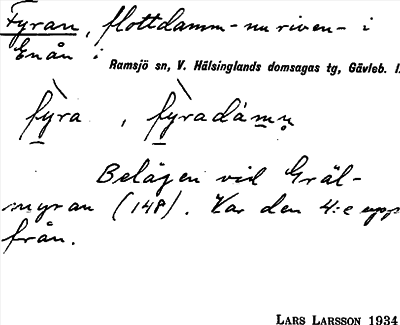 Fyran, flottdamm - nu riven - i
Enån i
Ramsjö sn, V. Hälsinglands domsagas tg, Gävleb. l.
fỳra , fỳradámn̥
Belägen vid Gräl-
myran (148). Var den 4:e upp
från.
LARS LARSSON 1934